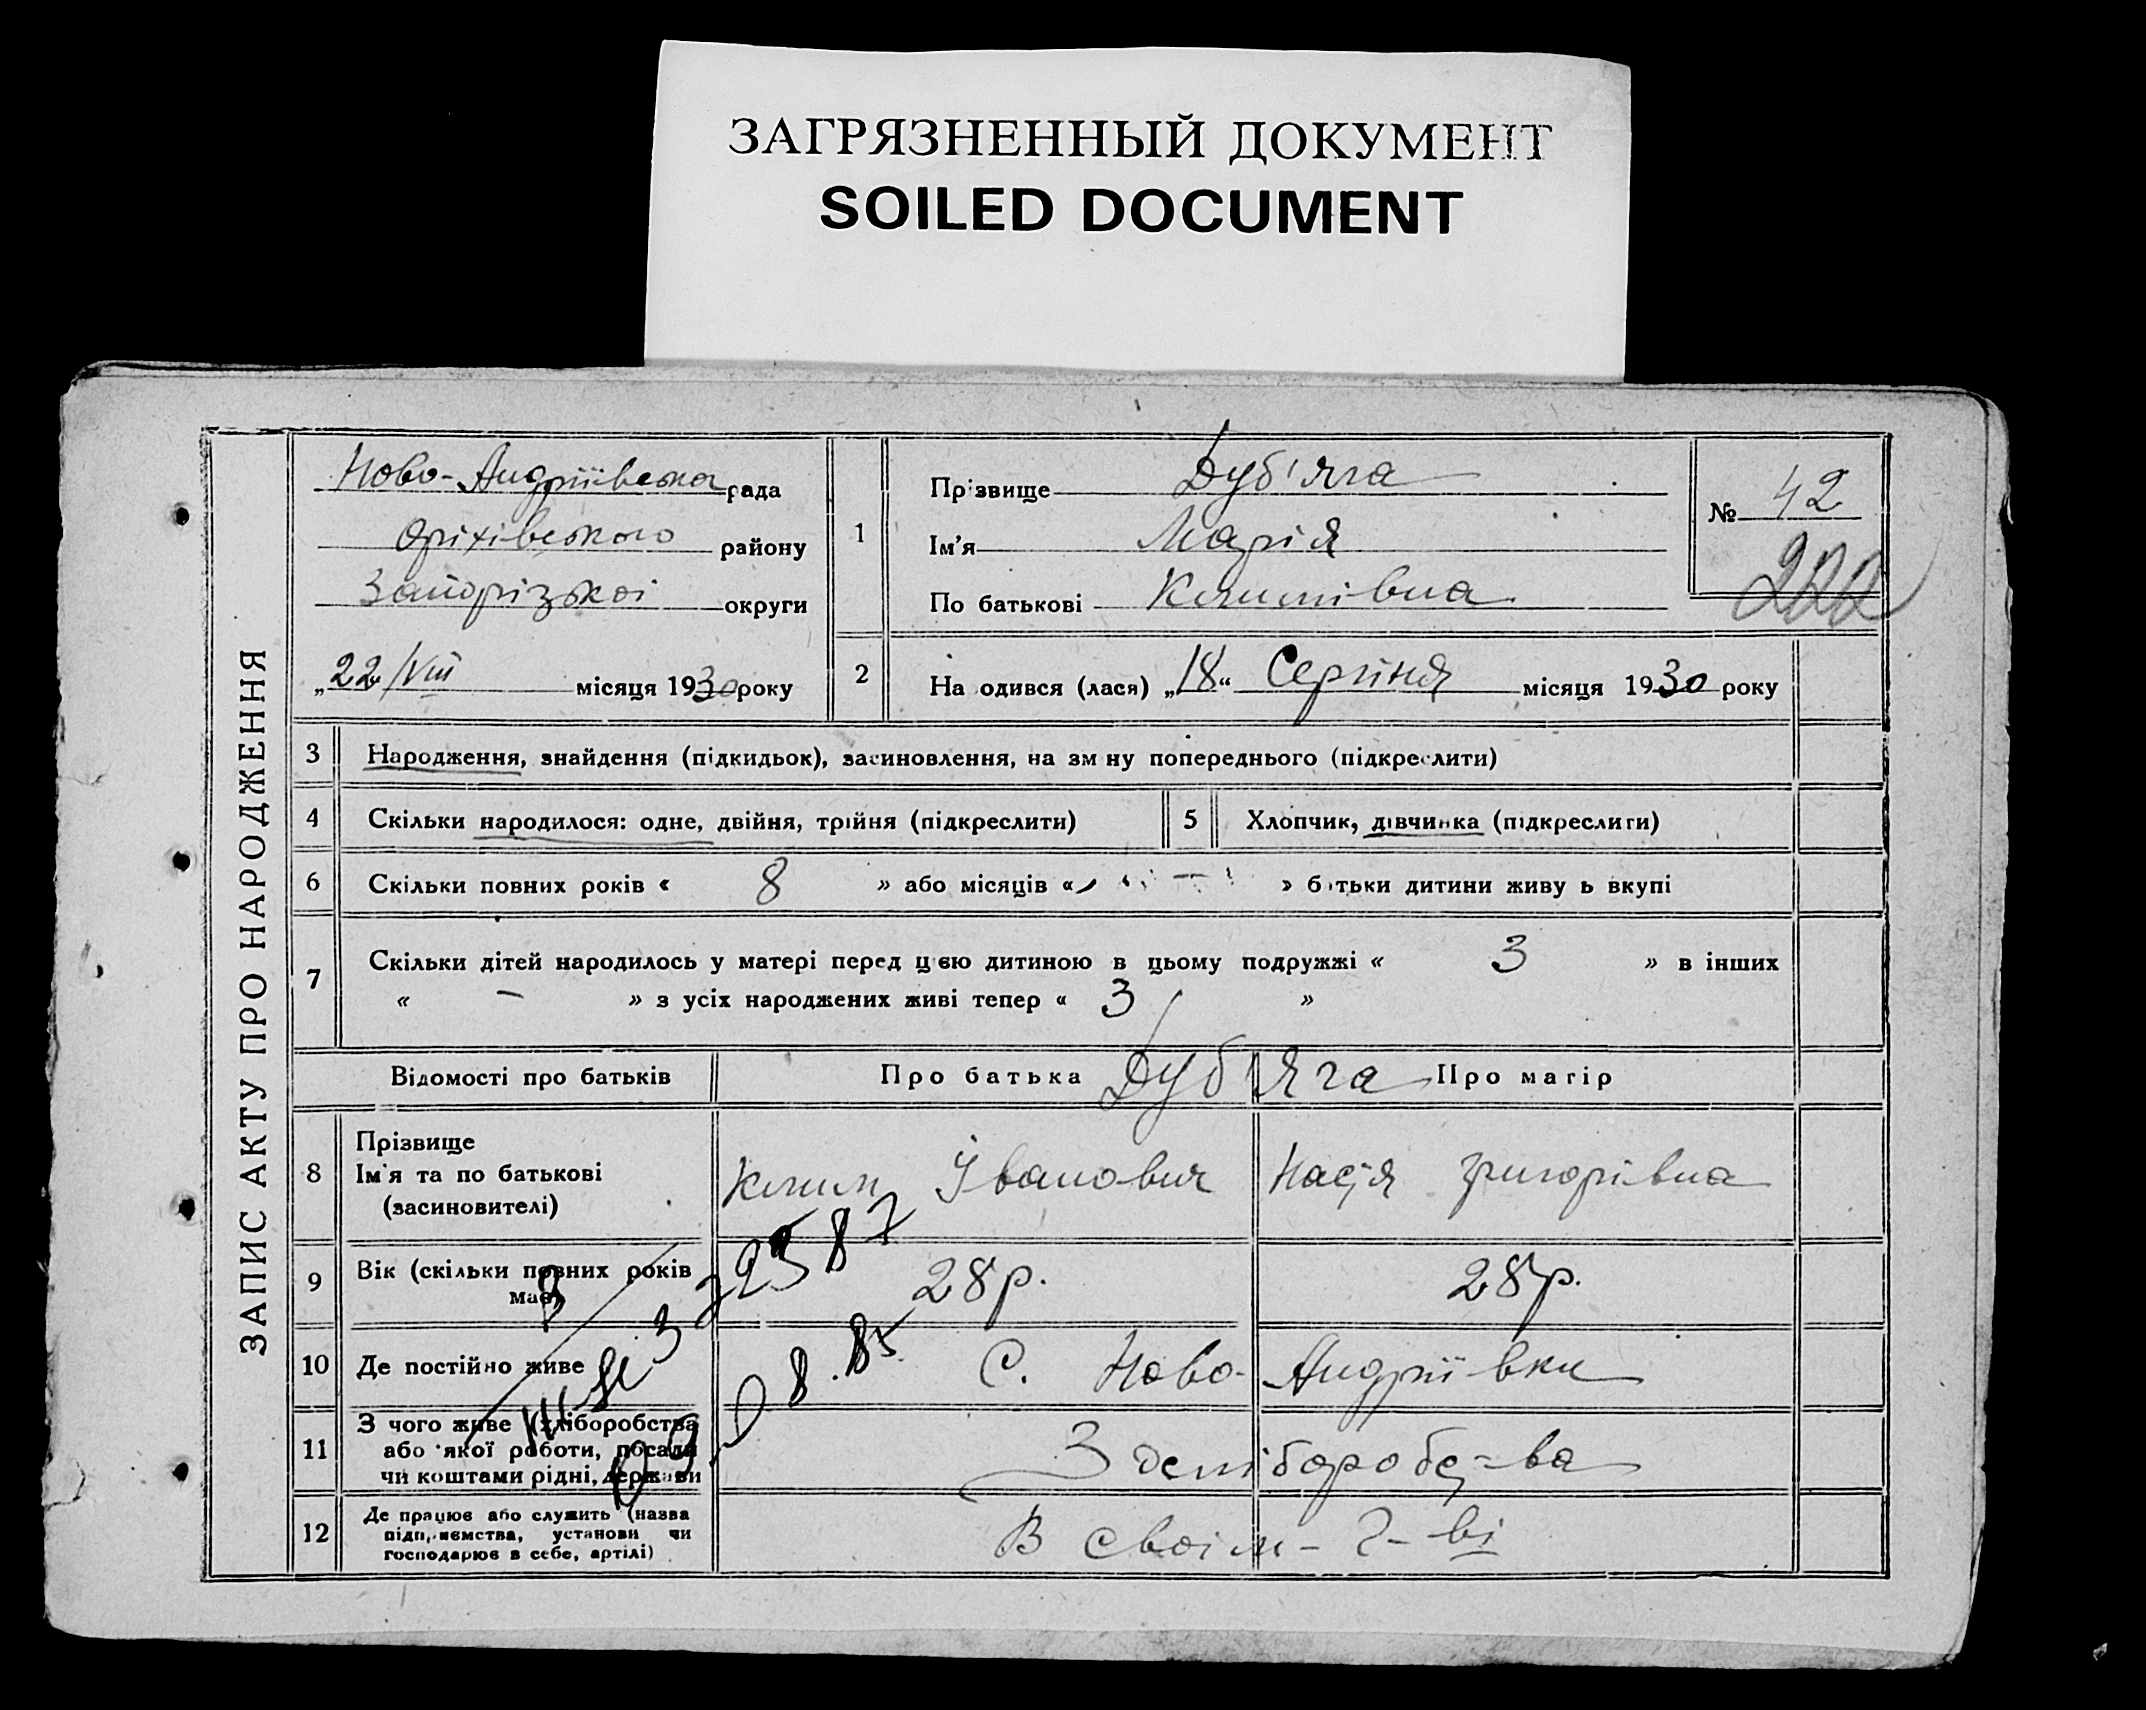 ЗАГРЯЗНЕННЫЙ ДОКУМЕНТ
SOILED DOCUMENT
ЗАПИС АКТУ ПРО НАРОДЖЕННЯ
Ново-Андріївська рада
Оріхівського району
Запорізької округи
„22/VIII місяця 1930 року
1 Прізвище Дуб'яга
Ім'я Марія
По батькові Климівна
№ 42
222
2 На одився (лася) „18“ Серпня місяця 1930 року
3 Народження, знайдення (підкидьок), засиновлення, на зм ну попереднього (підкреслити)
4 Скільки народилося: одне, двійня, трійня (підкреслити) 5 Хлопчик, дівчинка (підкреслити)
6 Скільки повних років « 8 » або місяців « » батьки дитини живу ь вкупі
7 Скільки дітей народилось у матері перед цією дитиною в цьому подружжі « 3 » в інших
« – » з усіх народжених живі тепер « 3 »
Відомості про батьків Про батька Дуб'яга Про матір
8 Прізвище
Ім'я та по батькові
(засиновителі)
Клим Іванович Настя Григорівна
9 Вік (скільки повних років
має)
28р. 28р.
10 Де постійно живе С. Ново-Андріївки
11 З чого живе (хліборобства
або якої роботи, посади
чи коштами рідні, держави
З хліборобст-ва
12 Де працює або служить (назва
підприємства, установи чи
господарює в себе, артілі)
В своім-г-ві